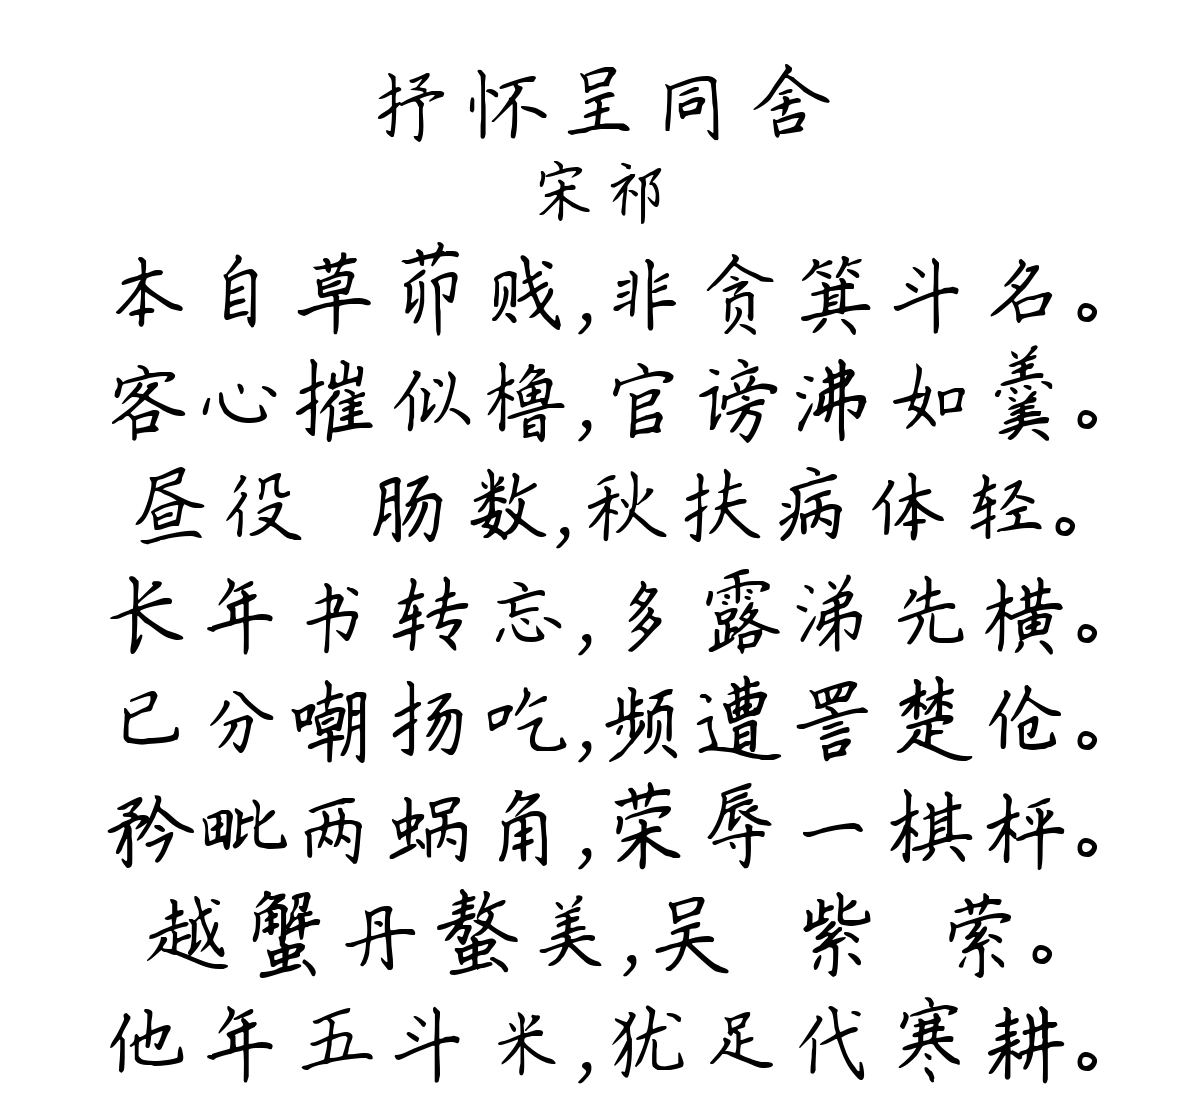 抒怀呈同舍
宋祁
本自草茆贱,非贪箕斗名。
客心摧似橹,官谤沸如羹。
昼役 肠数,秋扶病体轻。
长年书转忘,多露涕先横。
已分嘲扬吃,频遭詈楚伧。
矜毗两蜗角,荣辱一棋枰。
越蟹丹螯美,吴 紫 萦。
他年五斗米,犹足代寒耕。